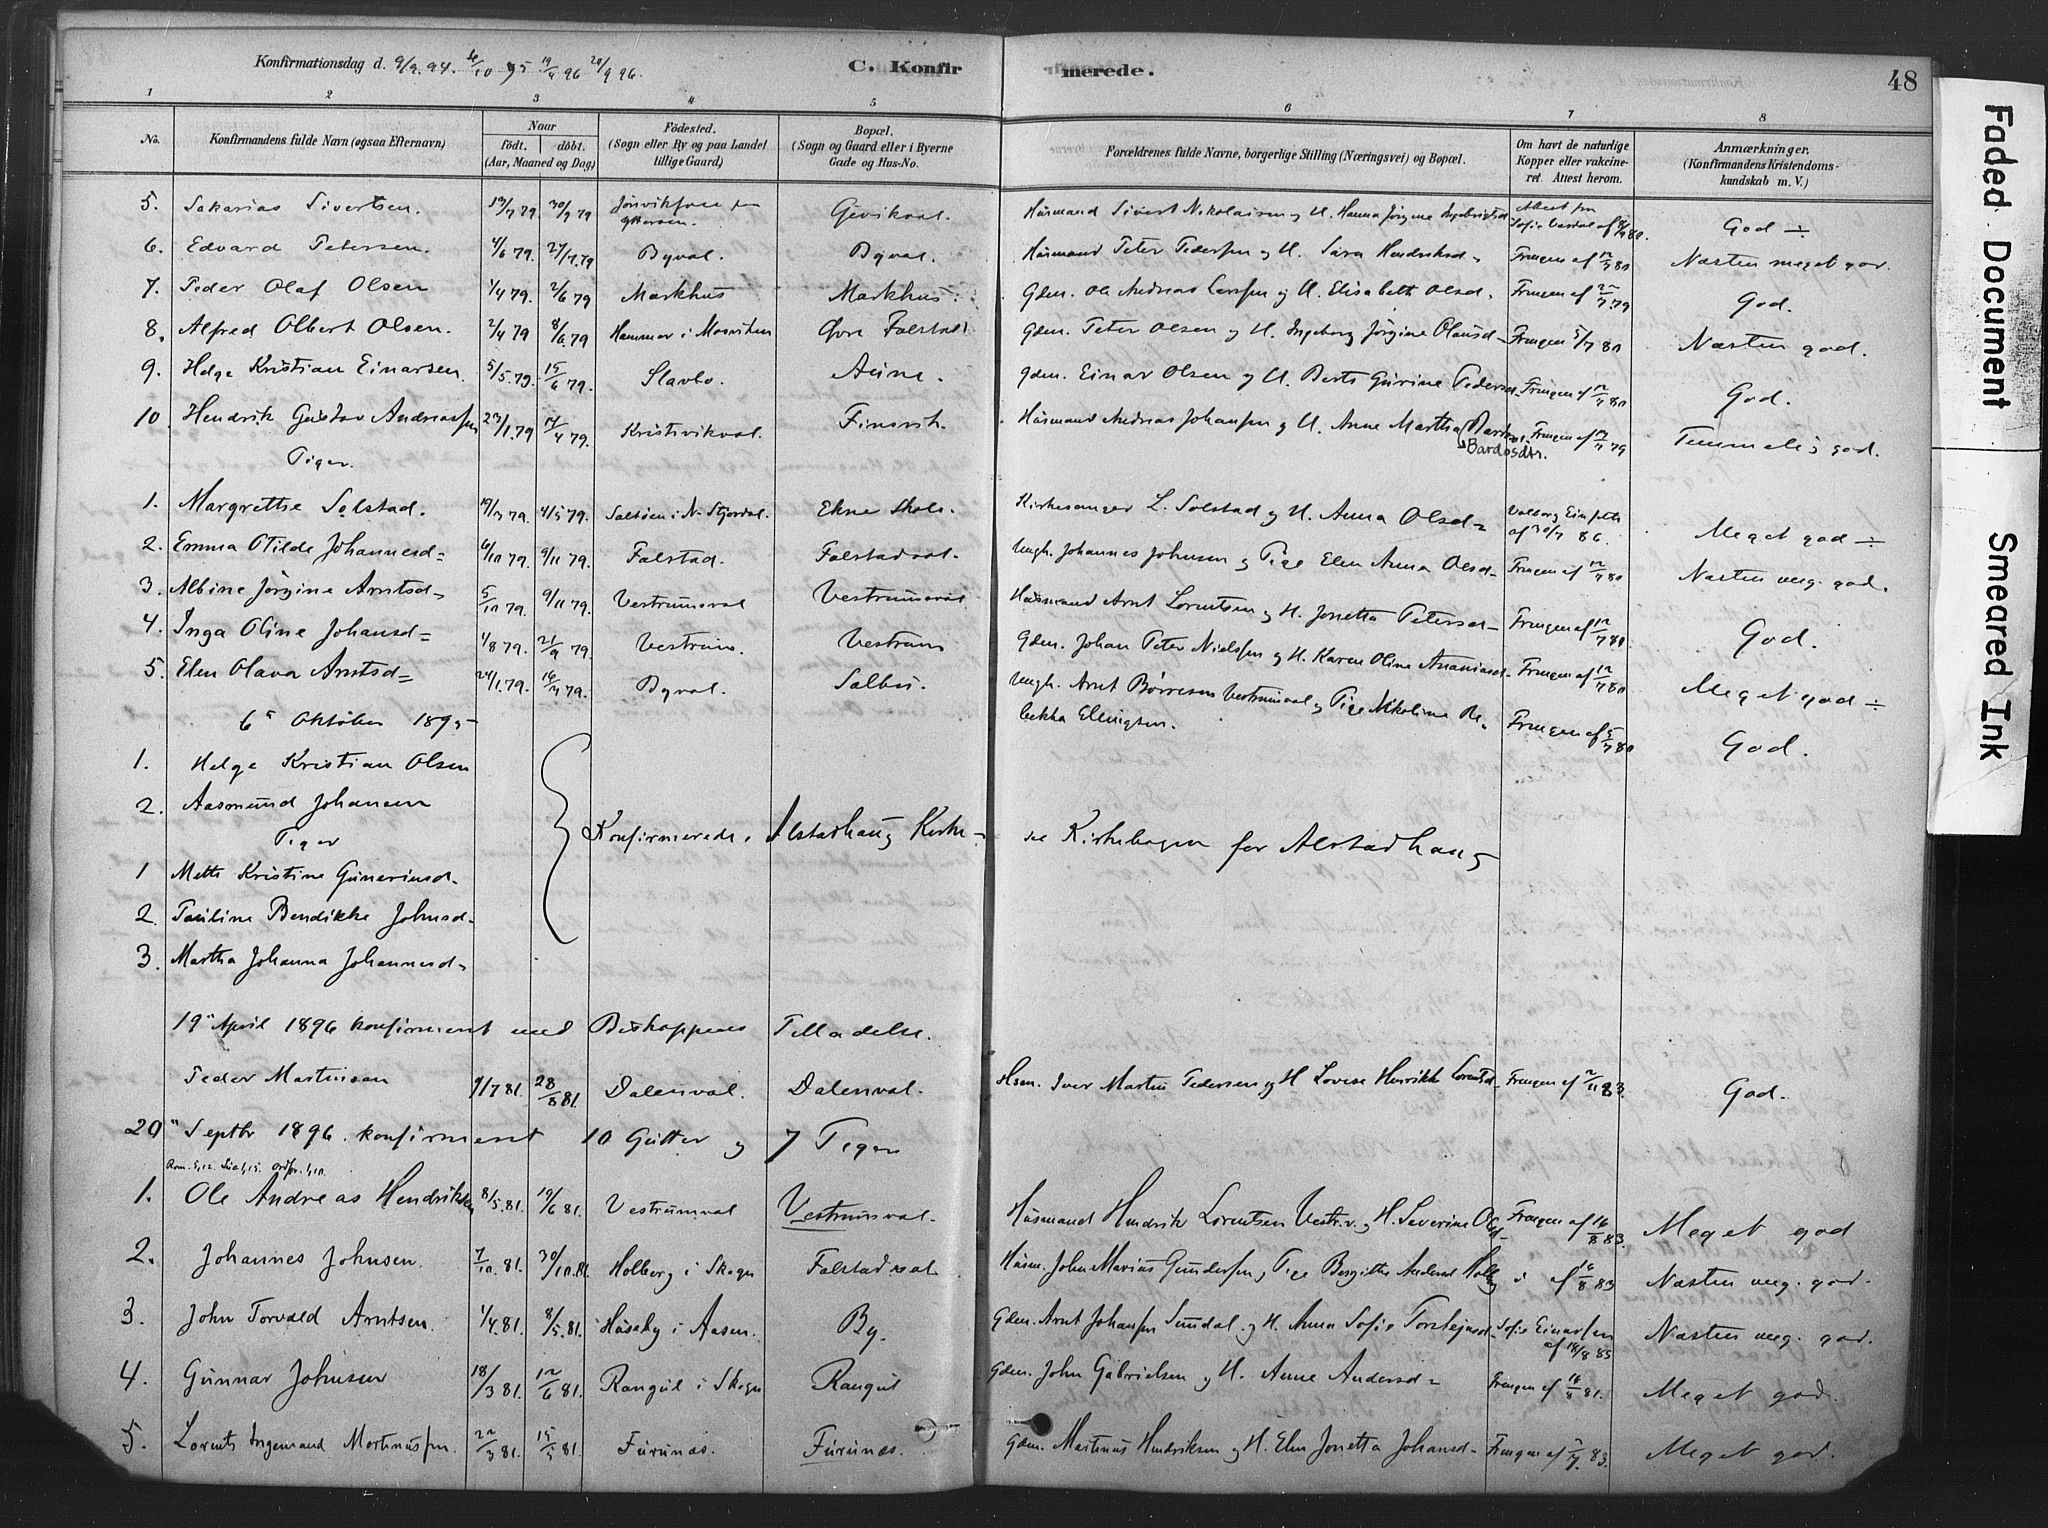 Konfirmationsdag d. 9/9. 94. 6/10 95 19/4 96 20/9 96.
C. Konfirmerede.
48
1 2 3 4 5 6 7 8
No. Konfirmandens fulde Navn (ogsaa Efternavn) Naar födt. döbt. (Aar, Maaned og Dag) Födested. (Sogn eller By og paa Landet tillige Gaard) Bopæl. (Sogn og Gaard eller i Byerne Gade og Hus-No. Forældrenes fulde Navne, borgerlige Stilling (Næringsvei) og Bopæl. Om havt de naturlige Kopper eller vakcineret. Attest herom. Anmærkninger. (Konfirmandens Kristendomskundskab m. V.)
5. Sakarias Sivertsen. 13/7 79. 30/9 79 Gjevikval. Husmand Sivert Nikolaisen og H. Hanna Jørgine Ingebrigtsd. Attest fra God ÷
6. Edvard Petersen. 4/6 79. 27/7. 79 Byval. Byval. Husmand Peter Pedersen og H. Sara Hendriksd. Frengen af 12/7 80 Næsten meget god.
7. Peder Olaf Olsen 1/4 79. 2/6 79 Markhus Markhus. Gdm. Ole Andreas Larssen og H. Elisabeth Olsd. Frengen af 22/7 79 God.
8. Alfred Olbert Olsen. 2/4 79 8/6. 79 Hammer i Mosviken Övre Falstad Gdm. Peter Olsen og H. Ingeborg Jörgine Olausd. Frengen 5/7 80 Næsten god.
9. Helge Kristian Einarsen. 5/5. 79. 15/6 79. Slavlo. Aune. Gdm. Einar Olsen og H. Berit Gurine Pedersd. Frengen af 12/7 80 God.
10. Hendrik Gustav Andreassen 23/1. 79 14/4 79. Kristivikval. Finsvik. Husmand Andreas Johansen og H. Anne Martha Bardosd. Frengen af 12/7 79 Temmelig god.
Bardosdtr.
Piger.
1. Margrethe Solstad. 19/3 79. 4/5 79. Saltöen i N. Stjördal. Ekne Skole. Kirkesanger L. Solstad og H. Anna Olsd. Valborg af 30/7 86. Meget god ÷
2. Emma Otilde Johannesd. 6/10 79. 9/11 79. Falstad. Falstadval. Ungk. Johannes Johnsen og Pige Elen Anna Olsd. Frengen af 12/7 80 Næsten meg. god.
3. Albine Jörgine Arntsd. 5/10 79. 9/11 79. Vestrumval Vestrumval Husmand Arnt Lorentsen og H. Jonetta Petersd. Frengen af 12/7 80 God.
4. Inga Oline Johansd. 1/8 79. 21/9 79. Vestrum. Vestrum Gdm. Johan Peter Nielssen og H. Karen Oline Ananiasd. Frengen af 12/7 80 Meget god ÷
5. Elen Olava Arntsd. 24/1. 79. 16/3 79. Byval. Salbu. Ungk. Arnt Børresen Vestrumval og Pige Nikoline Rebekka Ellingsen. Frengen af 5/7 80 God.
6te Oktober 1895
1. Helge Kristian Olsen
2. Aasmund Johansen
Piger
Konfirmerede i Alstadhaug Kirke se Kirkebogen for Alstadhaug
1 Mette Kristine Guneriusd.
2. Pauline Bendikke Johnsd.
3. Martha Johanna Johannesd.
19de April 1896 konfirmeret med Biskoppens Tilladelse.
Peder Martinsen 1/7 81. 28/8 81. Dalenval. Dalenval. Hsm. Iver Martin Pedersen og H. Lovise Henrikke Lorentsd. Frengen af 2/11 83. God.
20de Septbr 1896. konfirmeret 10 Gutter og 7 Piger
Rom. 5,12. Luc 1,15. Ordspr. 1,10.
1. Ole Andreas Hendriksen 8/5. 81. 19/6 81. Vestrumval Vestrumval. Husmand Hendrik Lorentsen Vestr.v. og H. Severine Olsd. Frengen af 16/8 83. Meget god
2. Johannes Johnsen. 7/10. 81. 30/10. 81. Holberg i Skogn Falstadval. Husm. John Marius Gundersen og Pige Bergitte Andersd Holberg i af 16/8 83 Næsten meg. god.
3. John Torvald Arntsen. 1/4. 81. 8/5. 81. Husaby i Aasen. By. Gdm. Arnt Johansen Sundal og H. Anna Sofie Torstejnsd. Sofie Einarsen af 18/8 85 Næsten meg. god.
4. Gunnar Johnsen 18/3 81. 12/6 81. Rangul i Skogn Rangul Gdm. John Gabrielsen og H. Anne Andersd. Frengen af 16/8 81. Meget god.
5. Lorents Ingemand Martinussen. 22/3 81. 15/5 81. Furunes. Furunes. Gdm. Martinus Hendriksen og H. Elen Jonetta Johansd. Frengen af 5/7. 83. Meget god.
Faded Document
Smeared Ink